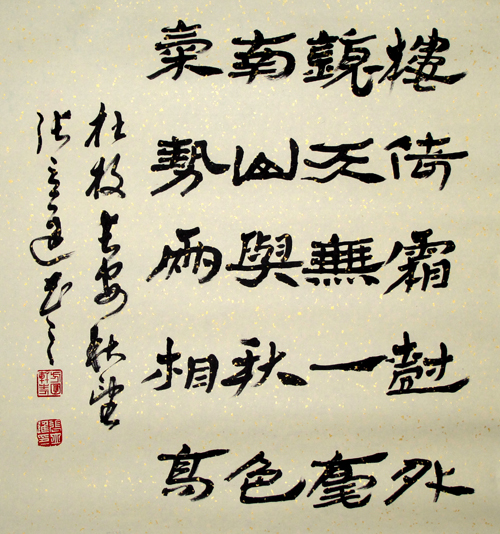 樓倚霜樹外
鏡天無一毫
南山與秋色
氣勢兩相高
杜牧長安秋望